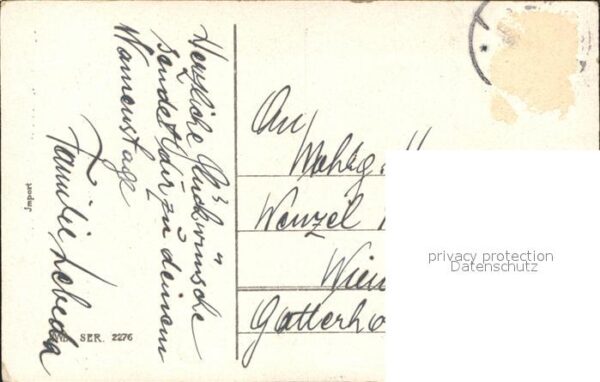 Herzliche Glückwünsche
sendet dir zu deinem
Namenstage
Familie Lebeda
Import
SER. 2276
An
Wohlg.
Wenzel
Wien
Gatterho
privacy protection
Datenschutz